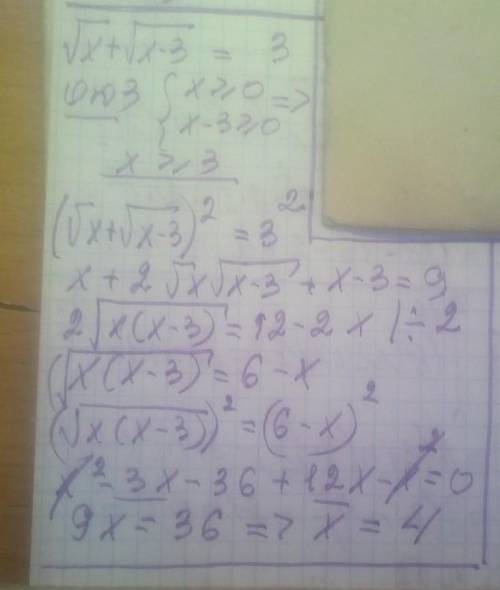 √x + √(x-3) = 3
ОДЗ { x ≥ 0 =>
x-3 ≥ 0
x ≥ 3
(√x + √(x-3))² = 3²
x + 2 √x √(x-3) + x-3 = 9
2√(x(x-3)) = 12 - 2x | ÷ 2
(√(x(x-3)) = 6 - x
(√(x(x-3)))² = (6-x)²
x² - 3x - 36 + 12x - x² = 0
9x = 36 => x = 4